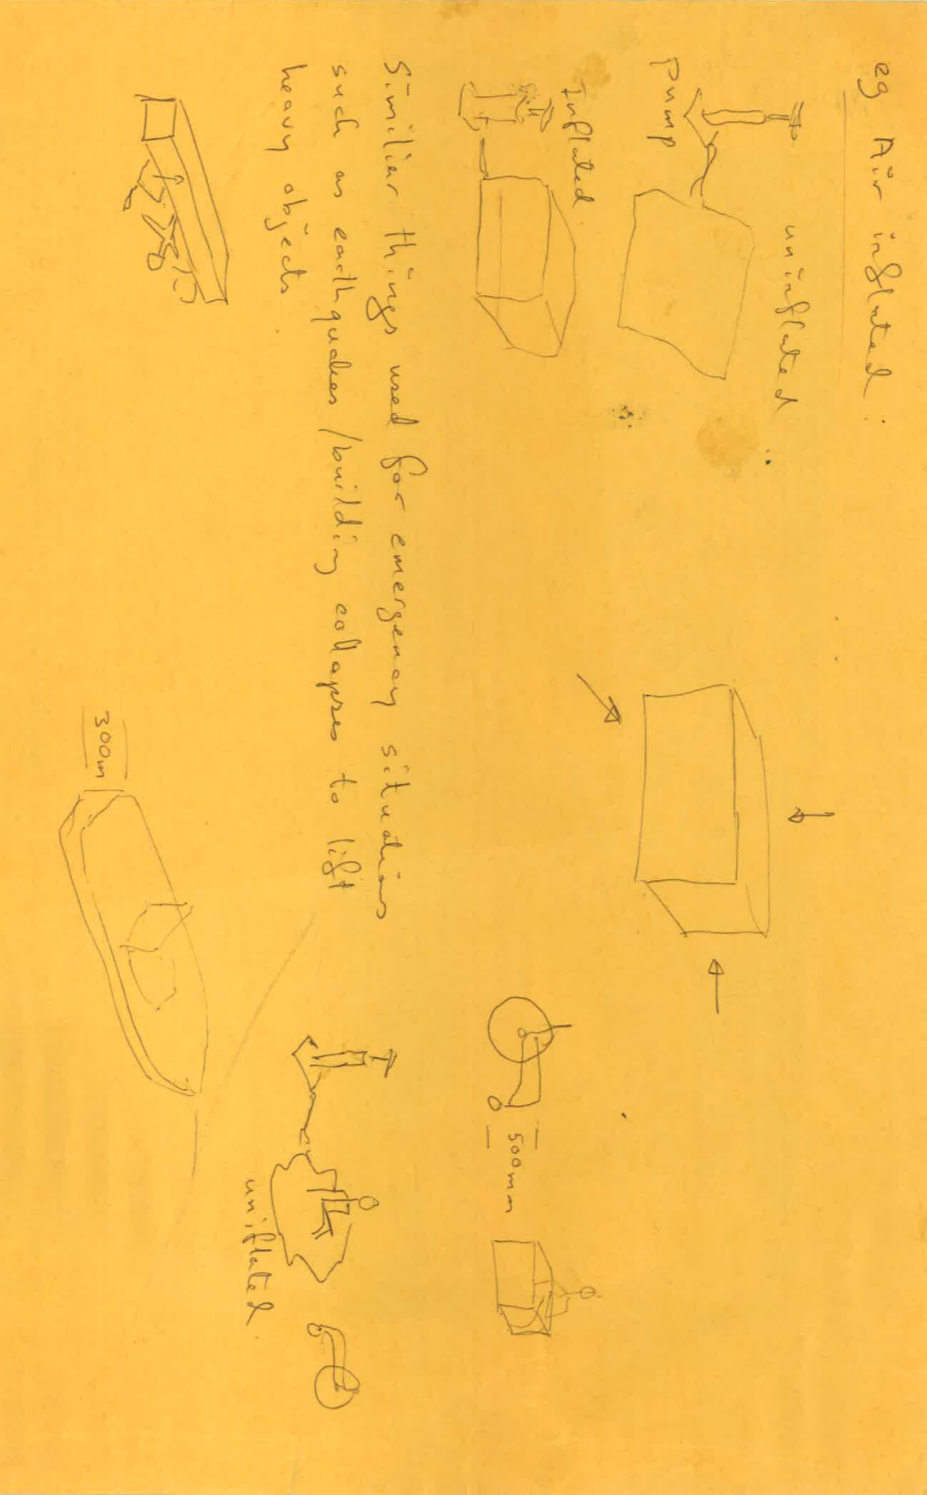 eg Air inflated :
uninflated
Pump
Inflated.
Similier things used for emergency situations
such as earthquakes / building collapses to lift
heavy objects
500mm
300m
uniflated